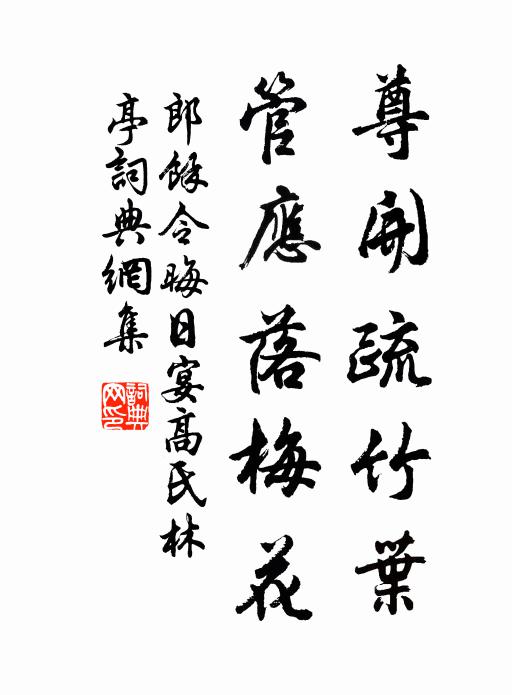 尊開疏竹葉
管應落梅花
郎餘令晦日宴高氏林
亭詞典網集
詞典
网印